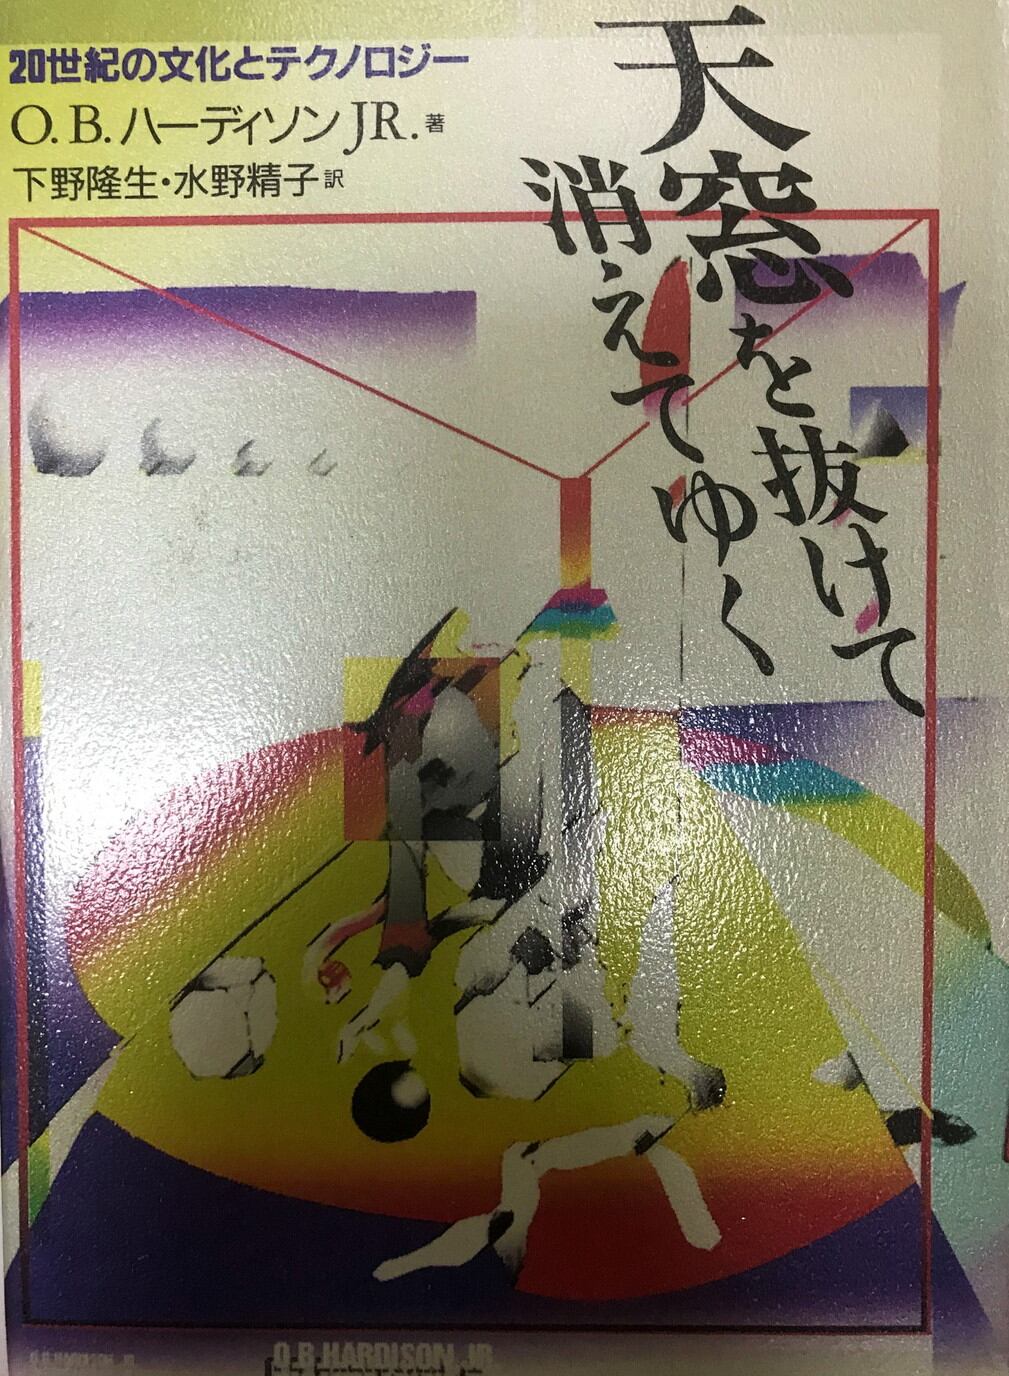 20世紀の文化とテクノロジー
O. B. ハーディソン JR. 著
下野隆生・水野精子 訳
天窓を抜けて
消えてゆく
O.B.HARDISON, JR
O.B.HARDISON, JR